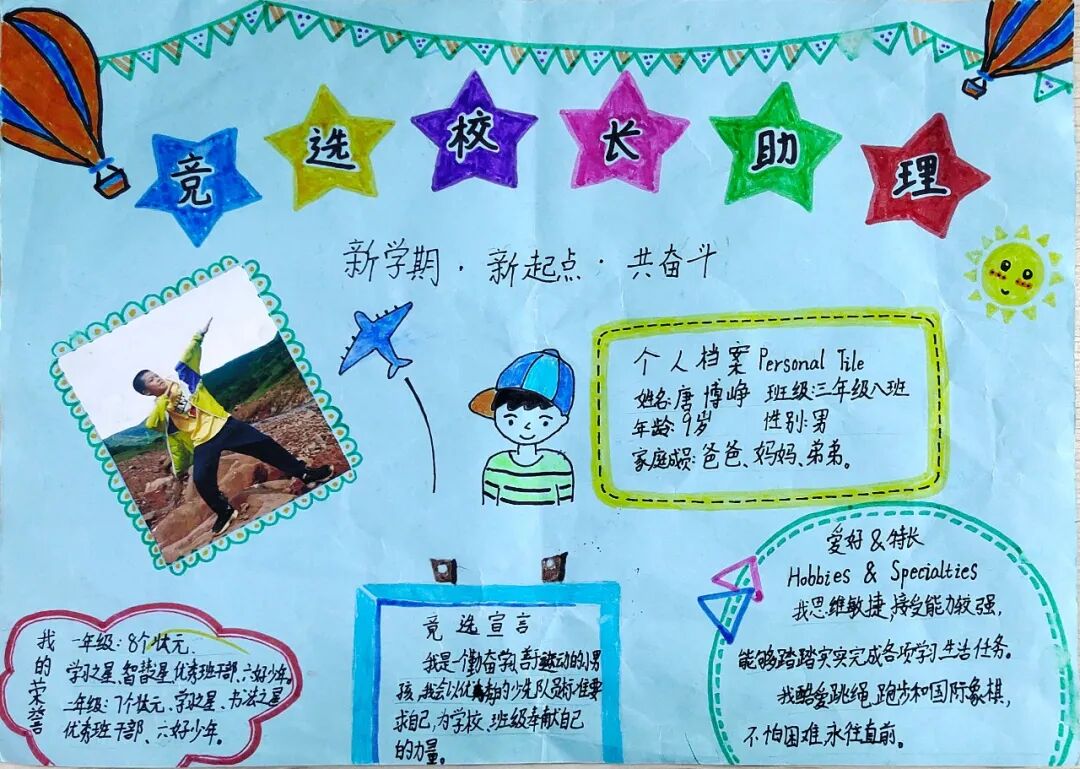 竞选校长助理
新学期·新起点·共奋斗
个人档案 Personal File
姓名:唐博峥 班级:三年级八班
年龄:9岁 性别:男
家庭成员:爸爸、妈妈、弟弟。
爱好&特长
Hobbies & Specialties
我思维敏捷,接受能力较强,
能够踏踏实实完成各项学习生活任务。
我酷爱跳绳、跑步和国际象棋,
不怕困难,永往直前。
竞选宣言
我是个勤奋学习,善于运动的小男
孩,我会以优秀的少先队员标准要
求自己,为学校、班级奉献自己
的力量。
我的荣誉
一年级:8个状元、
学习之星、智慧星、优秀班干部、六好少年。
二年级:7个状元、学习之星、书法之星
优秀班干部、六好少年。